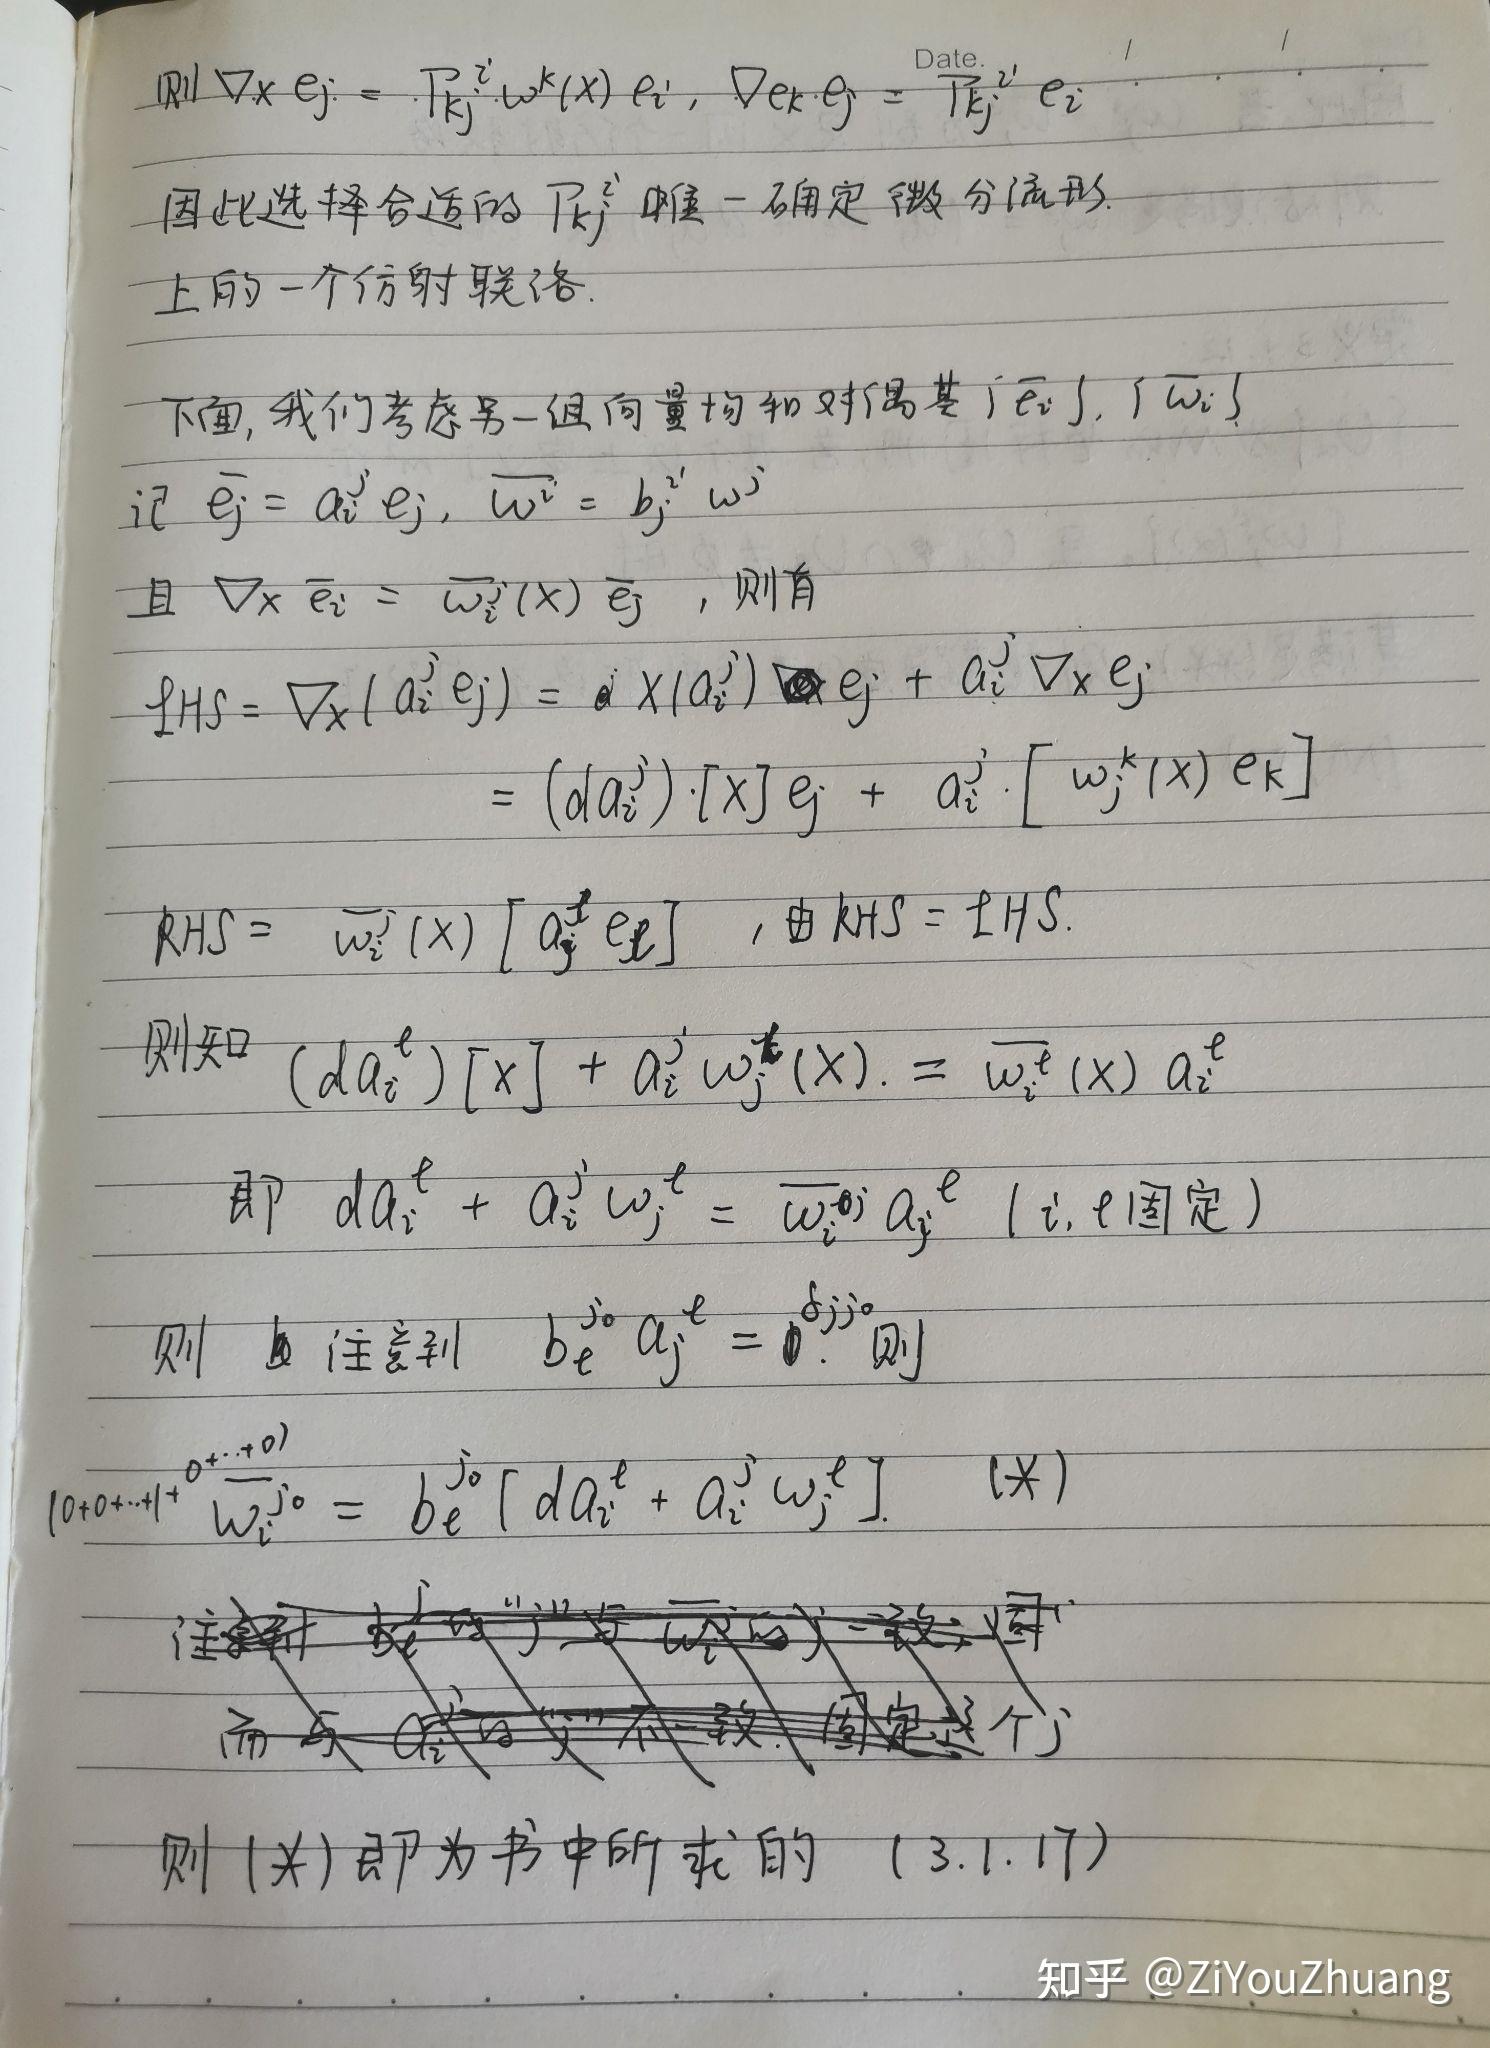 Date.
则 ∇x ej = Γkj^i ω^k(X) ei, ∇ek ej = Γkj^i ei
因此选择合适的 Γkj^i 唯一确定微分流形
上的一个仿射联络.
下面, 我们考虑另一组向量场和对偶基 {ēi}, {ω̄i}
记 ēj = ai^j ej, ω̄^i = bj^i ω^j
且 ∇x ēi = ω̄i^j(X) ēj , 则有
LHS = ∇x(ai^j ej) = X(ai^j) ej + ai^j ∇x ej
= (dai^j)·[X] ej + ai^j·[ωj^k(X) ek]
RHS = ω̄i^j(X) [aj^ℓ eℓ] , 由 RHS = LHS.
则知 (dai^ℓ)[X] + ai^j ωj^ℓ(X). = ω̄i^ℓ(X) ai^ℓ
即 dai^ℓ + ai^j ωj^ℓ = ω̄i^j aj^ℓ (i, ℓ 固定)
则 注意到 bℓ^j₀ aj^ℓ = δjj₀. 则
(0+0+…+1+0+…+0) ω̄i^j₀ = bℓ^j₀ [dai^ℓ + ai^j ωj^ℓ]. (*)
注意到 bℓ^j 的 "j" 与 ω̄i^j 的 j 一致, 固
而与 ai^j 的 "j" 不一致. 固定 个 j
则 (*) 即为书中所求的 (3.1.17)
知乎 @ZiYouZhuang